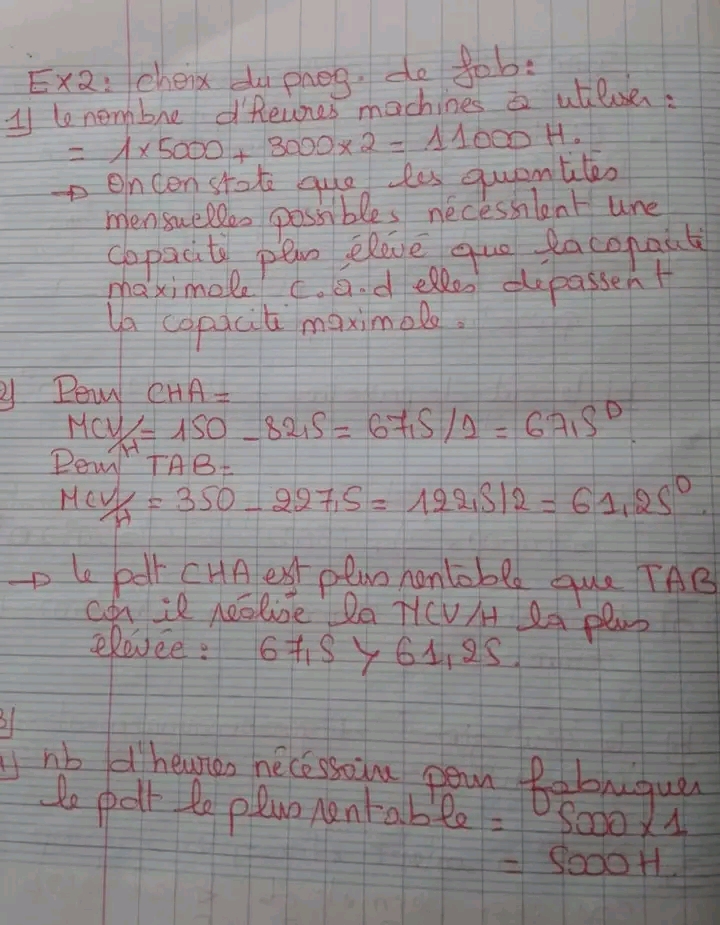 Ex2: choix du prog. de fab:
1) le nombre d'heures machines à utiliser:
= 1x5000 + 3000x2 = 11000 H.
→ on constate que les quantités
mensuelles possibles nécessitent une
capacité plus élévé que la capacité
maximale c.à.d elles dépassent
la capacité maximale.
2) Pour CHA =
MCV/H = 150 - 82,5 = 67,5/1 = 67,5 D
Pour TAB =
MCV/H = 350 - 227,5 = 122,5/2 = 61,25 D.
→ le pdt CHA est plus rentable que TAB
car il réalise la MCV/H la plus
élévée: 67,5 > 61,25.
3)
1) nb d'heures nécéssaire pour fabriquer
le pdt le plus rentable = 5000 x 1
= 5000 H.